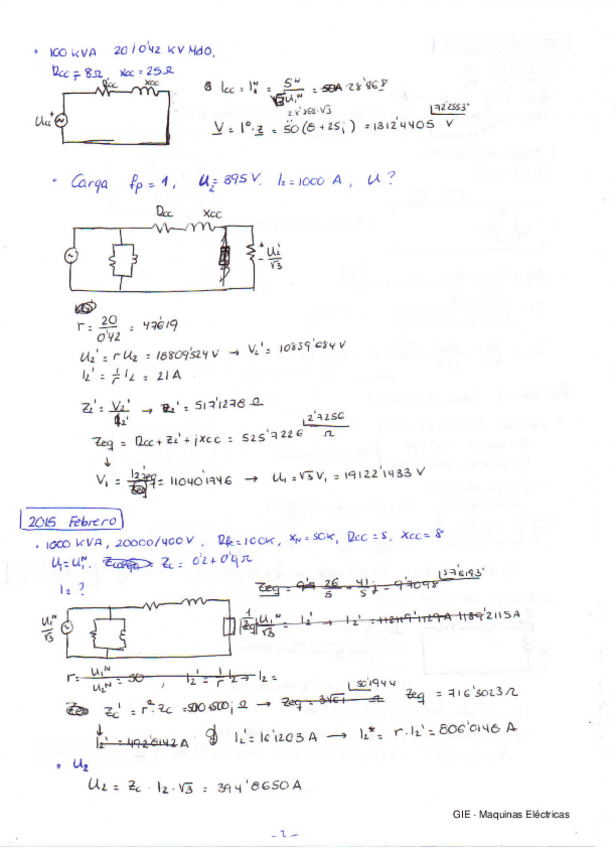 • 100 KVA 20/0'42 KV Mdo,
Rcc = 8Ω Xcc = 25Ω
Rcc Xcc
Ucc
Icc = I₁ᴺ = Sᴺ / √3 U₁ᴺ = 50A 28'868
28'868·√3
V = I°·Z = 50 (8 + 25j) = 1312'4405 |72'2553° V
• Carga fp = 1, U₂ = 395 V. I₂ = 1000 A, U ?
Rcc Xcc
+ U₂' / √3 -
r = 20 / 0'42 = 47'619
U₂' = r U₂ = 18809'524 V → V₂' = 10859'684 V
I₂' = 1/r I₂ = 21 A
Z₂' = V₂' / I₂' → Z₂' = 517'1278 Ω
Zeq = Rcc + Z₂' + jXcc = 525'7226 |2'7256 Ω
↓
V₁ = I₂' Zeq = 11040'1746 → U₁ = √3 V₁ = 19122'1433 V
2015 Febrero
• 1000 KVA, 20000/400 V, Rfe = 100K, XN = 50K, Rcc = 5, Xcc = 8
U₁ = U₁ᴺ. Zcarga Zc = 0'2 + 0'4 Ω
I₂ ?
Zeq = 26/5 + 41/5 j = 9'7098 |57'6193°
U₁ᴺ / √3
1/Zeq U₁ᴺ/√3 = I₂' → I₂' = 1189'2115 A
r = U₁ᴺ / U₂ᴺ = 50, I₂' = 1/r I₂ → I₂ =
Zc' = r²·Zc = 500+500j Ω → Zeq = |50'1944 Ω Zeq = 716'3023 Ω
I₂' = 4928'142 A I₂' = 16'1203 A → I₂* = r·I₂' = 806'0146 A
• U₂
U₂ = Zc · I₂ · √3 = 394'8650 A
GIE - Maquinas Eléctricas
-2-